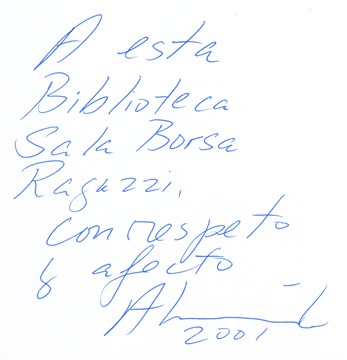 A esta
Biblioteca
Sala Borsa
Ragazzi,
con respeto
y afecto
2001